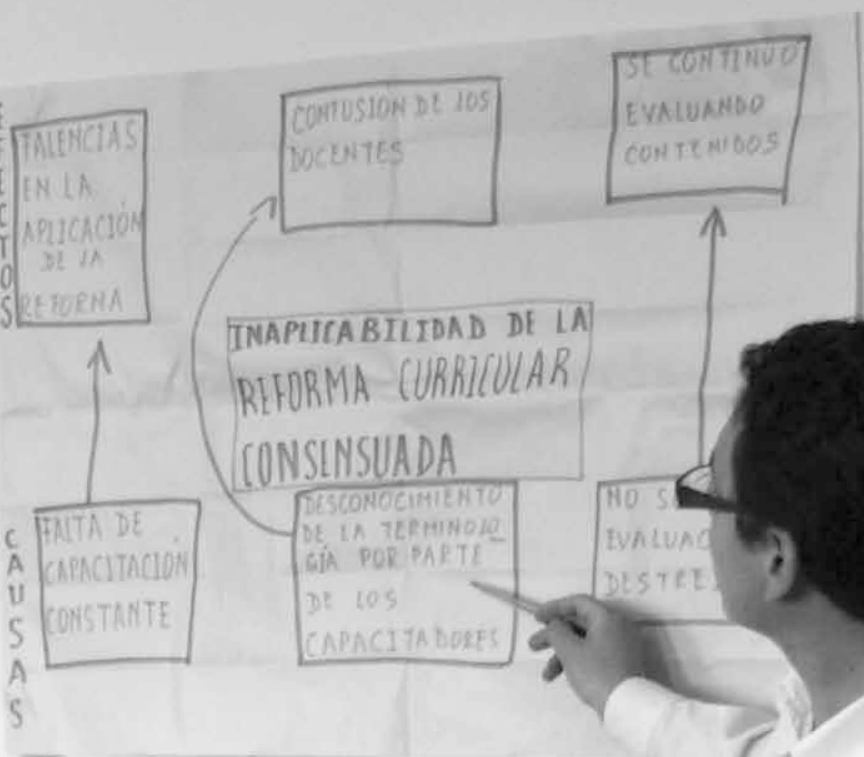 EFECTOS
FALENCIAS
EN LA
APLICACIÓN
DE LA
REFORMA
CONFUSION DE LOS
DOCENTES
SE CONTINUO
EVALUANDO
CONTENIDOS
INAPLICABILIDAD DE LA
REFORMA CURRICULAR
CONSENSUADA
CAUSAS
FALTA DE
CAPACITACIÓN
CONSTANTE
DESCONOCIMIENTO
DE LA TERMINOLO_
GÍA POR PARTE
DE LOS
CAPACITADORES
NO